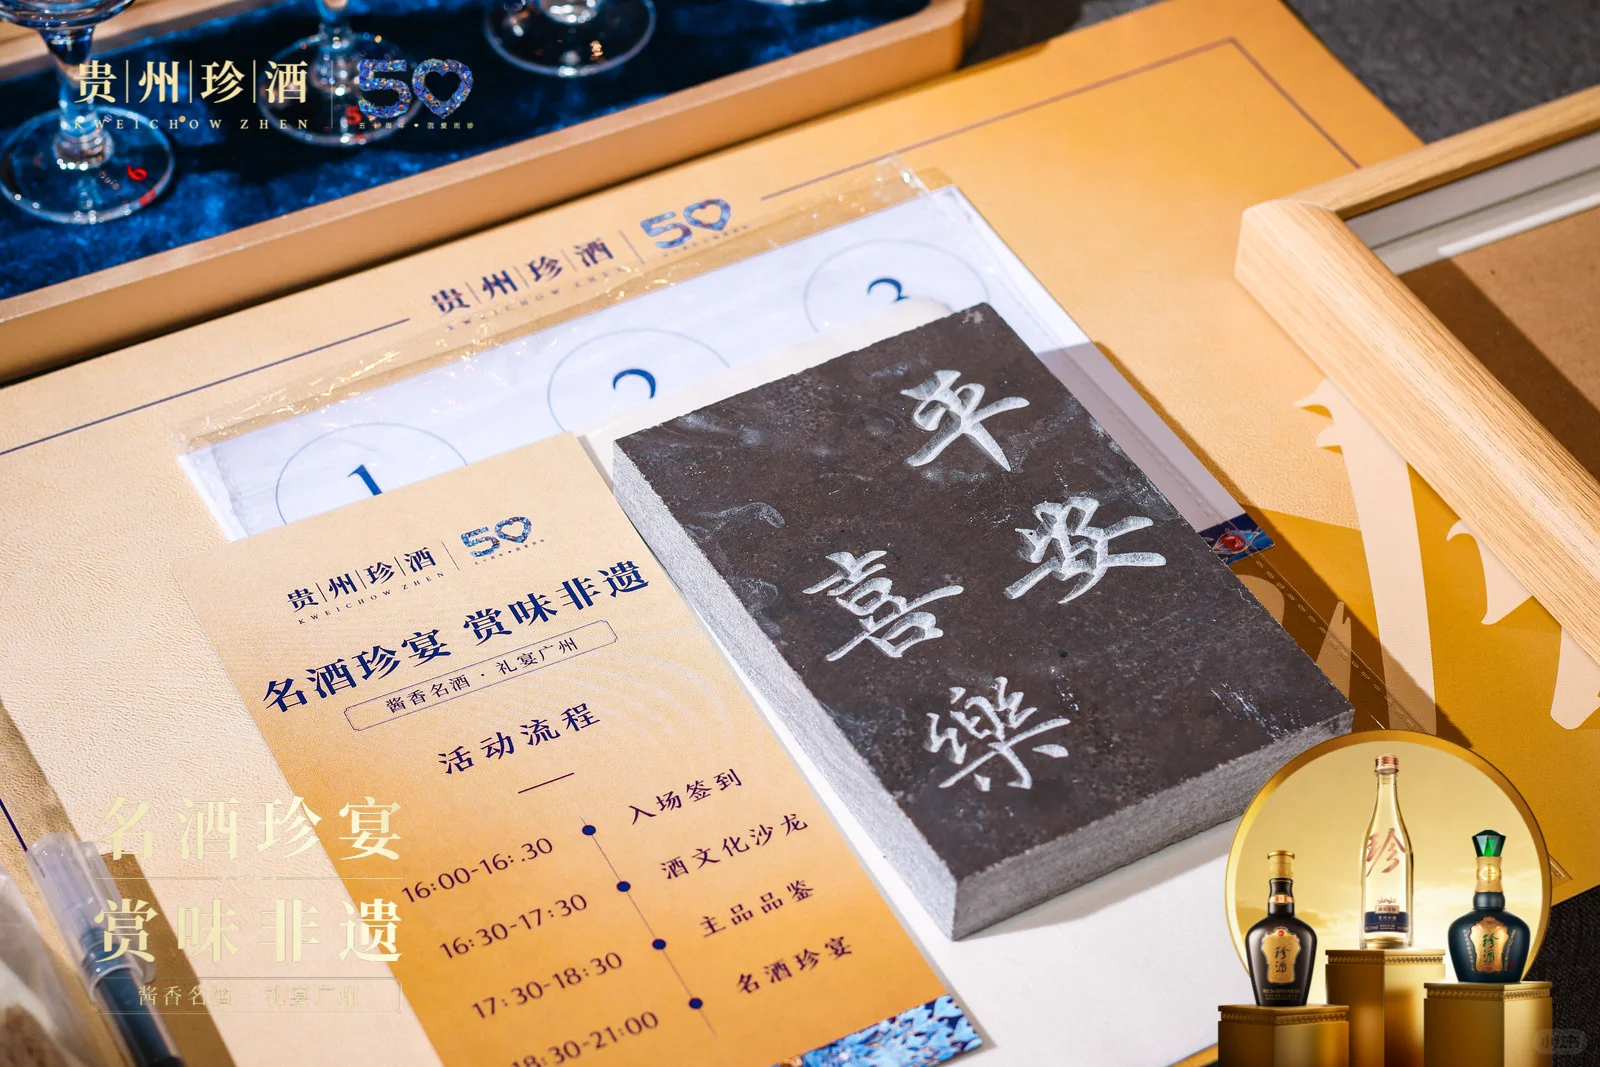 贵州珍酒
KWEICHOW ZHEN
50
五十周年·因爱而珍
6
5
贵州珍酒
KWEICHOW ZHEN
50
1
2
3
贵州珍酒
KWEICHOW ZHEN
50
名酒珍宴 赏味非遗
酱香名酒·礼宴广州
活动流程
16:00-16:.30 入场签到
16:30-17:30 酒文化沙龙
17:30-18:30 主品品鉴
18:30-21:00 名酒珍宴
平安
喜樂
名酒珍宴
赏味非遗
酱香名酒·礼宴广州
珍
珍酒
珍酒
小红书